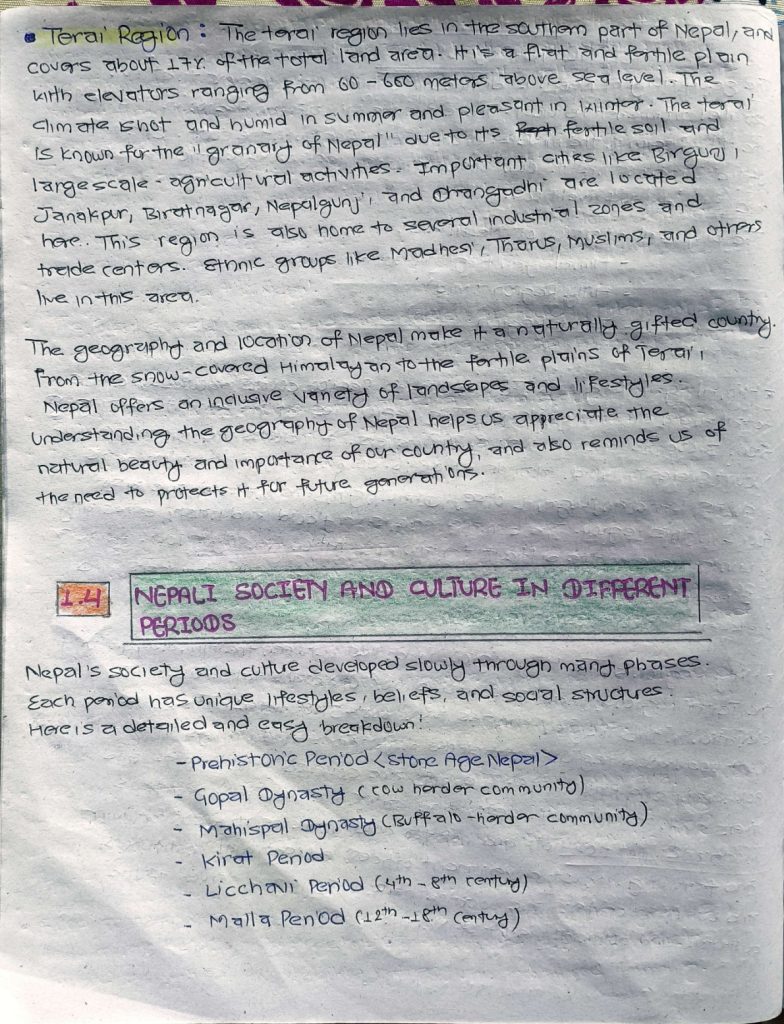 • Terai Region : The terai region lies in the southern part of Nepal, and
covers about 17% of the total land area. It is a flat and fertile plain
with elevators ranging from 60 - 660 meters above sea level. The
climate is hot and humid in summer and pleasant in winter. The terai
is known for the "granary of Nepal" due to its fertile soil and
large scale - agricultural activities. Important cities like Birgunj,
Janakpur, Biratnagar, Nepalgunj, and Dhangadhi are located
here. This region is also home to several industrial zones and
trade centers. Ethnic groups like Madhesi, Tharus, Muslims, and others
live in this area.
The geography and location of Nepal make it a naturally gifted country.
From the snow-covered Himalayan to the fertile plains of Terai,
Nepal offers an inclusive variety of landscapes and lifestyles.
Understanding the geography of Nepal helps us appreciate the
natural beauty and importance of our country, and also reminds us of
the need to protects it for future generations.
1.4 NEPALI SOCIETY AND CULTURE IN DIFFERENT
PERIODS
Nepal's society and culture developed slowly through many phases.
Each period has unique lifestyles, beliefs, and social structures.
Here is a detailed and easy breakdown!
- Prehistoric Period <Stone Age Nepal>
- Gopal Dynasty (cow herder community)
- Mahispal Dynasty (Buffalo-herder community)
- Kirat Period
- Licchavi Period (4th - 8th century)
- Malla Period (12th - 18th century)